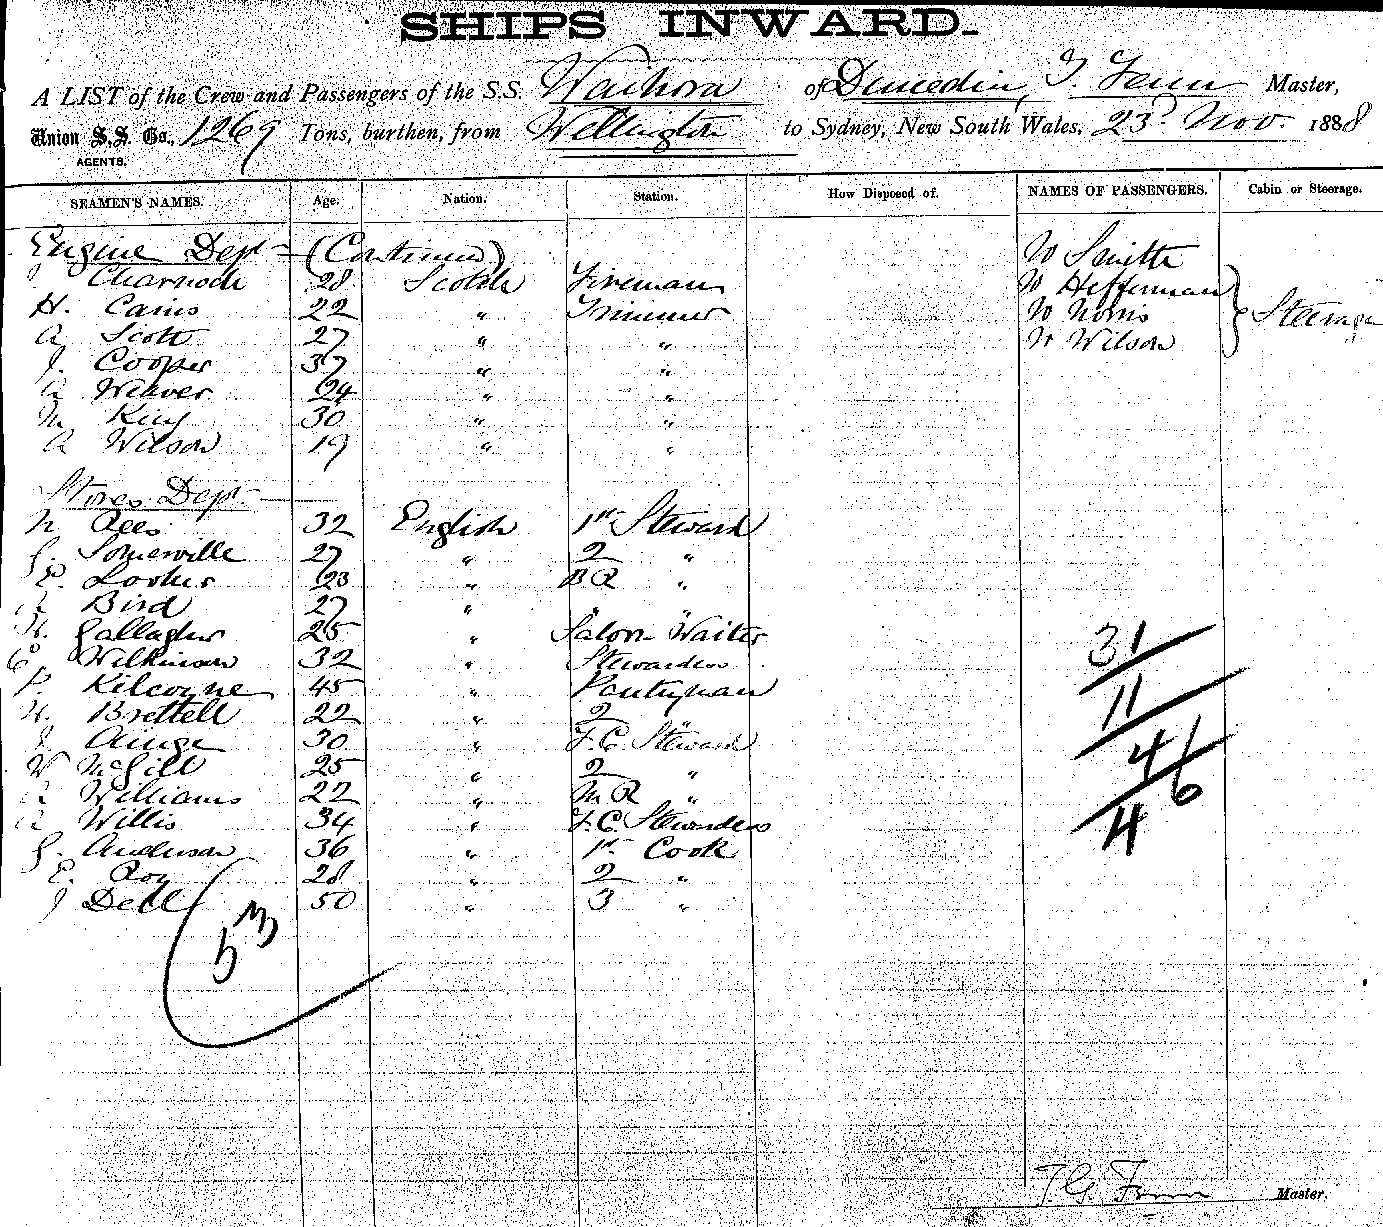 SHIPS INWARD.
A LIST of the Crew and Passengers of the S.S. Waihora of Dunedin, T. Fenn Master,
Union S.S. Co., 1269 Tons, burthen, from Wellington to Sydney, New South Wales, 23d Nov. 1888
AGENTS.
SEAMEN'S NAMES. Age. Nation. Station. How Disposed of. NAMES OF PASSENGERS. Cabin or Steerage.
Engine Dept (Continued) W Smith
J Charnock 28 Scotch Fireman W Heffernan
H. Cains 22 " Trimmer W Norris Steerage
A Scott 27 " " W Wilson
J. Cooper 37 " "
A Weaver 24 " "
M King 30 " "
A Wilson 19 " "
Stores Dept
N Rees 32 English 1st Steward
G. Somerville 27 " 2 "
E. Looker 23 " B R "
Bird 27 " " "
H. Gallagher 25 " Saloon Waiter
Wilkinson 32 " Stewardess
P. Kilcoyne 45 " Pantryman
H. Brettell 22 " 2 "
J Ainge 30 " F.C. Steward
W McGill 25 " 2 "
Williams 22 " M R "
Willis 34 " F.C. Stewardess
G. Anderson 36 " 1st Cook
E. Roy 28 " 2 "
J Dell 50 " 3 "
53
31
11
4 / 6
4
T. G. Fenn Master.